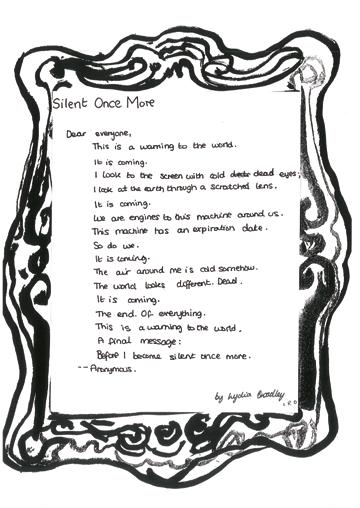 Silent Once More
Dear everyone,
This is a warning to the world.
It is coming.
I look to the screen with cold dead eyes;
I look at the earth through a scratched lens.
It is coming.
We are engines to this machine around us.
This machine has an expiration date.
So do we.
It is coming.
The air around me is cold somehow.
The world looks different. Dead.
It is coming.
The end. Of everything.
This is a warning to the world.
A final message:
Before I become silent once more.
-- Anonymous.
by Lydia